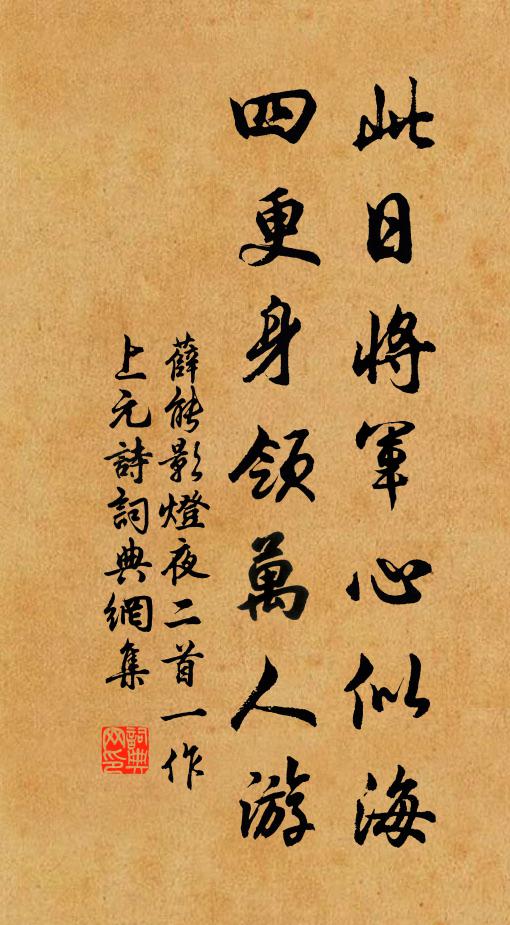 此日將軍心似海
四更身領萬人游
薛能影燈夜二首一作
上元詩詞典網集
詞典網印